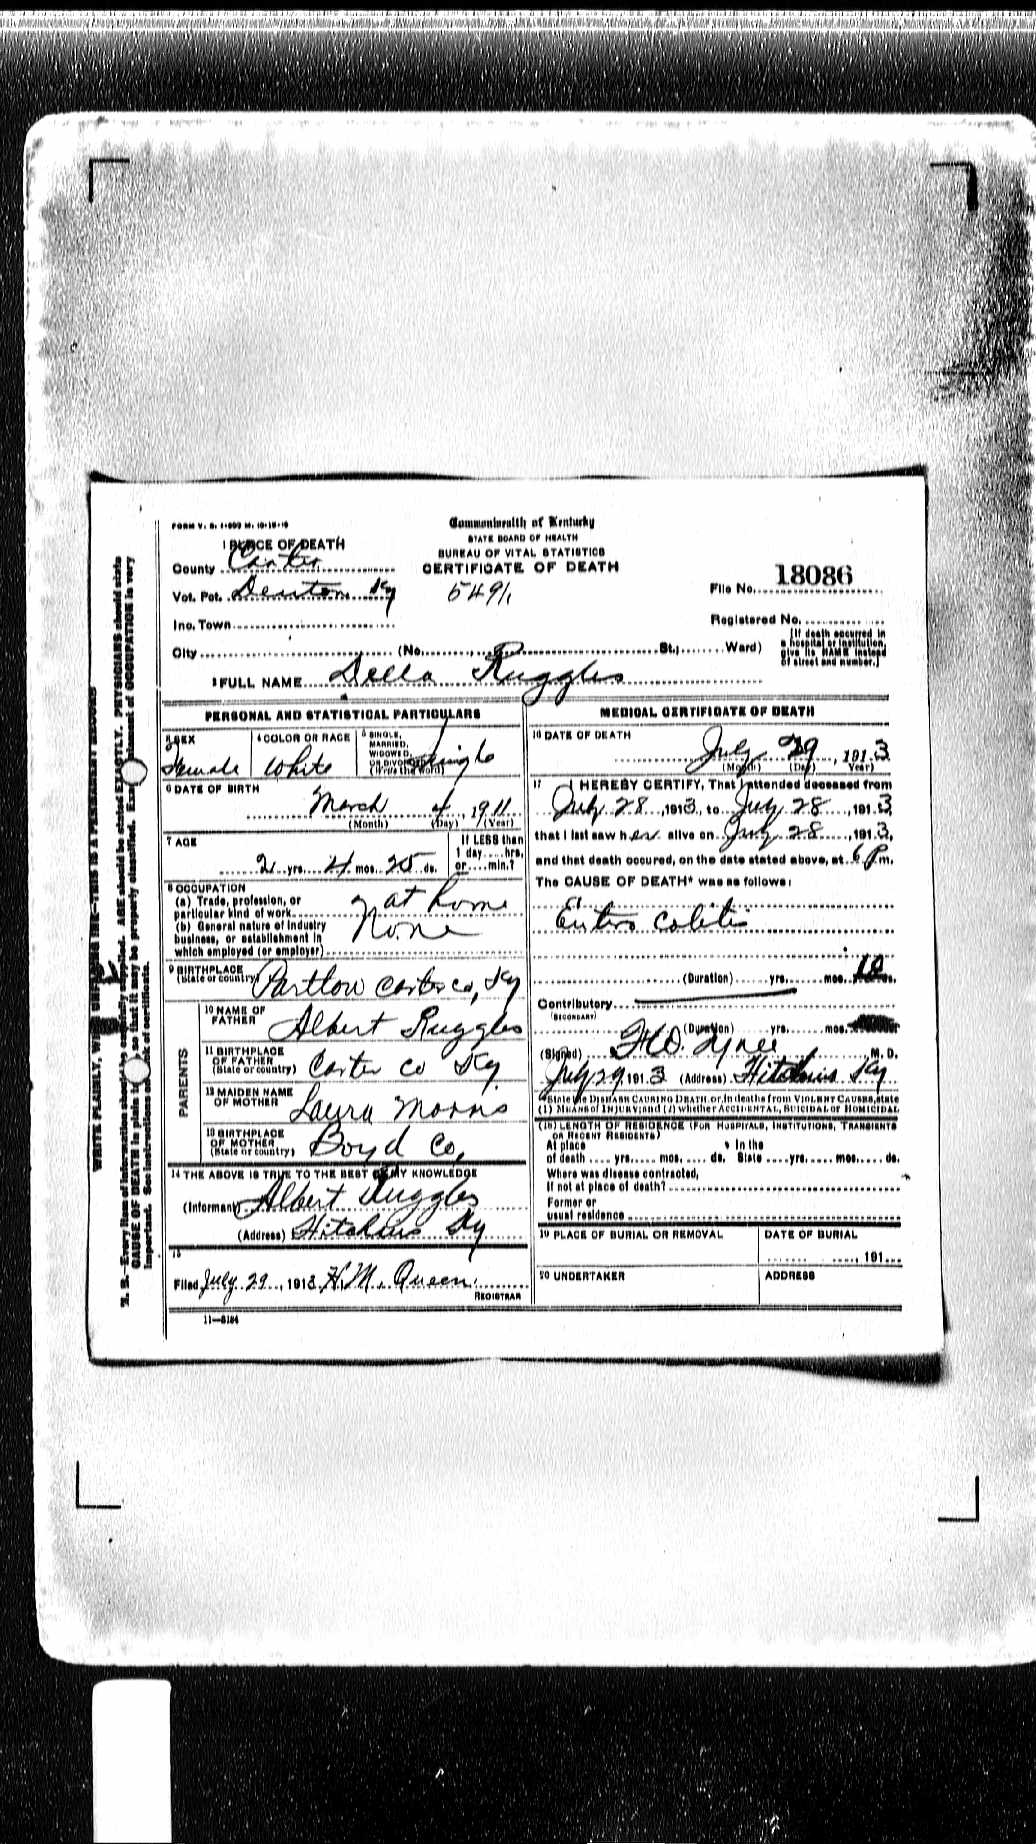 FORM V. S. 1-
Commonwealth of Kentucky
STATE BOARD OF HEALTH
BUREAU OF VITAL STATISTICS
CERTIFICATE OF DEATH
1 PLACE OF DEATH
County Carter
Vot. Pct. Denton Ky
5491
File No. 18086
Inc. Town
Registered No.
City (No. St.; Ward)
[If death occurred in a hospital or institution, give its NAME instead of street and number.]
2 FULL NAME Della Ruggles
PERSONAL AND STATISTICAL PARTICULARS
3 SEX Female
4 COLOR OR RACE White
5 SINGLE, MARRIED, WIDOWED, OR DIVORCED (Write the word) Single
6 DATE OF BIRTH March 4, 1911
(Month) (Day) (Year)
7 AGE 2 yrs. 4 mos. 25 ds.
If LESS than 1 day.....hrs. or.....min.?
8 OCCUPATION
(a) Trade, profession, or particular kind of work at home
(b) General nature of industry business, or establishment in which employed (or employer) None
9 BIRTHPLACE (State or country) Partlow Carter co, Ky
PARENTS
10 NAME OF FATHER Albert Ruggles
11 BIRTHPLACE OF FATHER (State or country) Carter co Ky
12 MAIDEN NAME OF MOTHER Laura Morris
13 BIRTHPLACE OF MOTHER (State or country) Boyd Co,
14 THE ABOVE IS TRUE TO THE BEST OF MY KNOWLEDGE
(Informant) Albert Ruggles
(Address) Hitchins Ky
15
Filed July 29, 1913 H.M. Queen
REGISTRAR
11—5184
MEDICAL CERTIFICATE OF DEATH
16 DATE OF DEATH July 29, 1913
(Month) (Day) Year)
17 I HEREBY CERTIFY, That I attended deceased from
July 28, 1913, to July 28, 1913
that I last saw her alive on July 28, 1913,
and that death occured, on the date stated above, at 6 P.m.
The CAUSE OF DEATH* was as follows:
Entero Colitis
(Duration) yrs. mos. 10 ds.
Contributory
(SECONDARY)
(Duration) yrs. mos.
(Signed) M. D.
July 29, 1913 (Address) Hitchins Ky
*State the DISEASE CAUSING DEATH or, in deaths from VIOLENT CAUSES, state
(1) MEANS of INJURY; and (2) whether ACCIDENTAL, SUICIDAL or HOMICIDAL
(18) LENGTH OF RESIDENCE (FOR HOSPITALS, INSTITUTIONS, TRANSIENTS
OR RECENT RESIDENTS)
At place In the
of death yrs. mos. ds. State yrs. mos. ds.
Where was disease contracted,
If not at place of death?
Former or
usual residence
19 PLACE OF BURIAL OR REMOVAL
DATE OF BURIAL
, 191
20 UNDERTAKER
ADDRESS
WRITE PLAINLY, THIS IS A PERMANENT RECORD
N. B.—Every item of information should be carefully supplied. AGE should be stated EXACTLY. PHYSICIANS should state
CAUSE OF DEATH in plain so that it may be properly classified. Exact statement of OCCUPATION is very
important. See instructions of certificate.